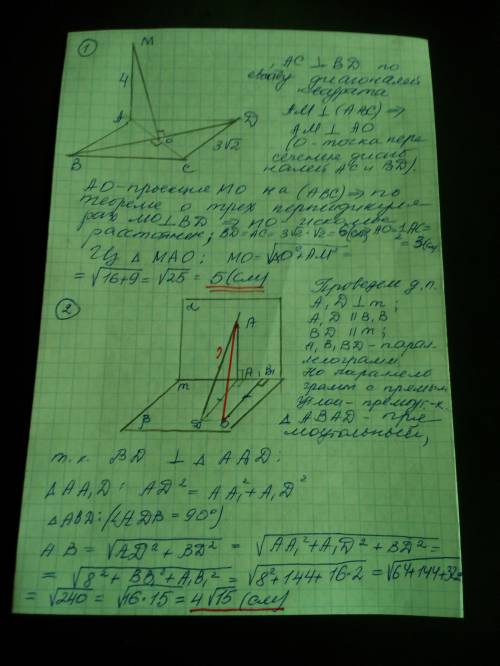 1
M
4
A
O
D
B
C
3√2
AC ⊥ BD по
свойству диагоналей
квадрата
AM ⊥ (ABC) ⇒
AM ⊥ AO
(O - точка пере
сечения диаго
налей AC и BD).
AO - проекция MO на (ABC) ⇒ по
теореме о трех перпендикуля-
рах MO ⊥ BD ⇒ MO искомое
расстояние; BD = AC = 3√2 · √2 = 6(см) AO = 1/2 AC =
= 3(см)
Из △ MAO: MO = √AO² + AM² =
= √16+9 = √25 = 5(см)
2
α
A
A₁
B₁
m
β
D
B
Проведем д.п.
A₁D ⊥ m;
A₁D ∥ B₁B
BD ∥ m;
A₁B₁BD - парал-
лелограмм.
Но параллело
грамм с прямым
углом - прямоуг-к.
△ ABD - пря-
моугольный,
т.к. BD ⊥ △ AA₁D:
△AA₁D: AD² = AA₁² + A₁D²
△ABD: (∠ADB = 90°)
AB = √AD² + BD² = √AA₁² + A₁D² + BD² =
= √8² + BB₁² + A₁B₁² = √8² + 144 + 16·2 = √64+144+32 =
= √240 = √16·15 = 4√15 (см)